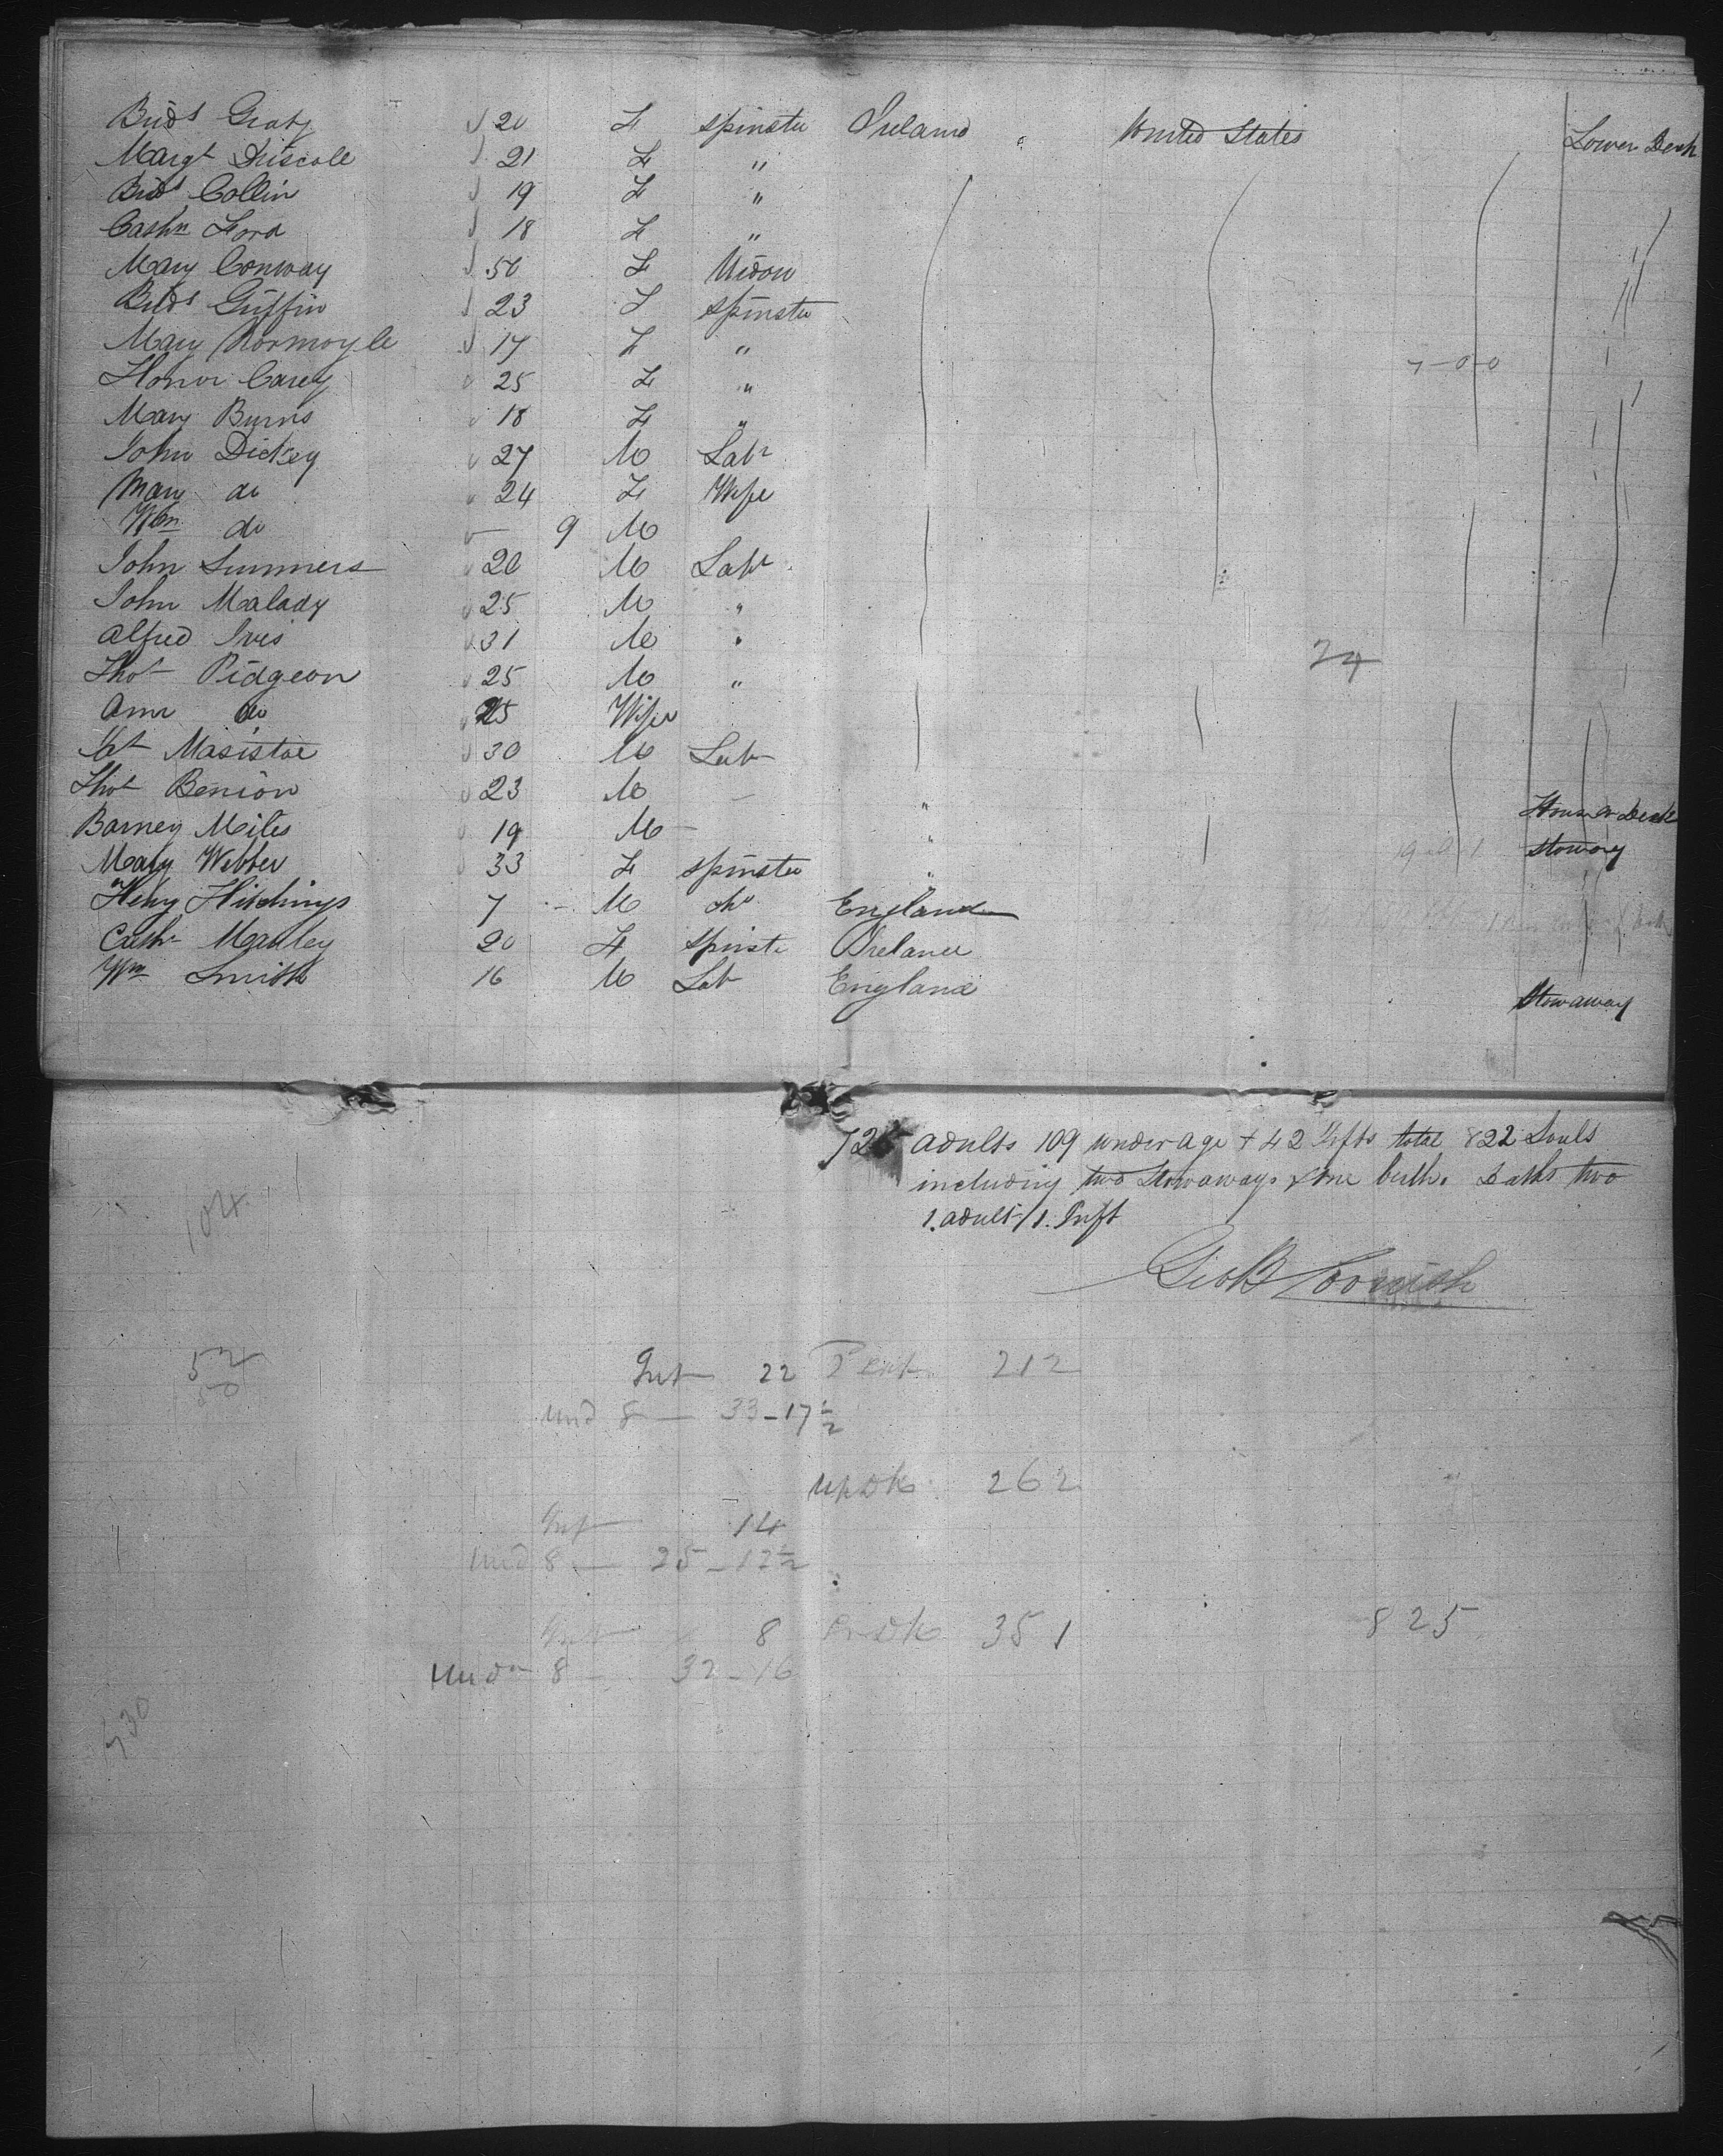 Bridt Graty 20 F Spinster Ireland United States Lower Deck
Margt Driscole 21 F "
Bridt Collin 19 F "
Cathn Ford 18 F "
Mary Conway 50 F Widow
Bridt Griffin 23 F Spinster
Mary Normoyle 17 F " 7-0-0
Honor Carey 25 F "
Mary Burns 18 F "
John Dickey 27 M Labr
Mary do 24 F Wife
Wm do 9 M
John Summers 20 M Labr
John Malady 25 M "
Alfred Ives 31 M "
24
Thos Pidgeon 25 M "
Ann do 25 Wife
30 M Lab
Thos Benion 23 M — "
House on Deck
Barney Miles 19 M — "
Stoway
Mary Webber 33 F Spinster "
Heny Hitchings 7 - M Ch England
Cathn Manley 20 F Spinste Ireland
Wm Smith 16 M Lab England
Stowaway
725 adults 109 under age + 42 Infts total 822 Souls
including two Stowaways & one birth. Deaths two
1. adult / 1. Inft
104
Geo B Cornish
52
Inf 22 212
und 8 — 33-17½
Up Dk 262
Inf 14
und 8 — 25-12½
Inf 8 Dk 351 825
Under 8 — 32-16
730